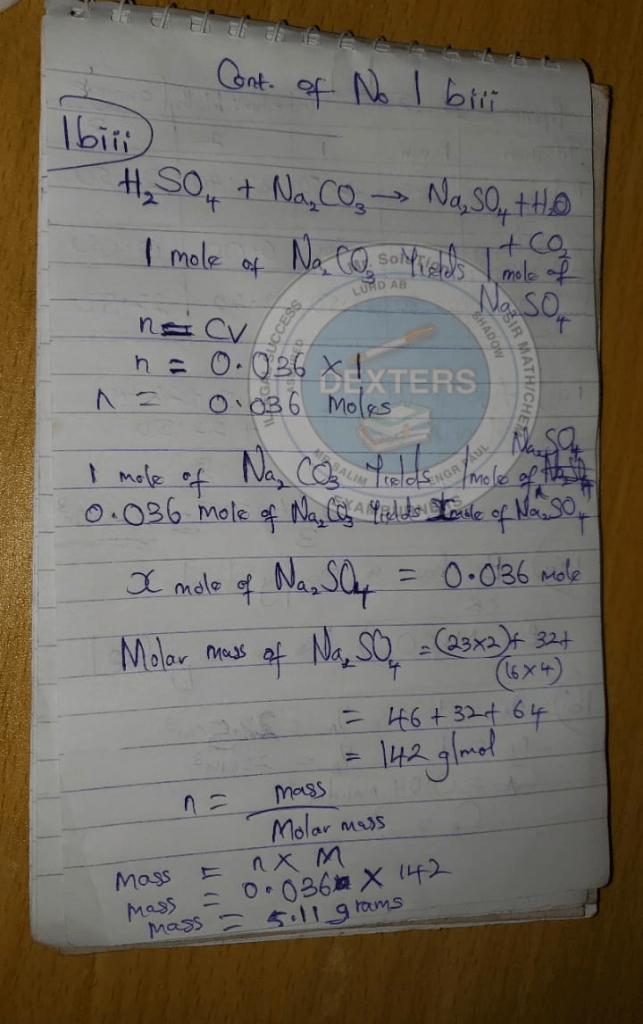 Cont. of No 1 biii
1biii)
H₂SO₄ + Na₂CO₃ → Na₂SO₄ + H₂O
+ CO₂
1 mole of Na₂CO₃ Yields 1 mole of
Na₂SO₄
n = CV
n = 0.036 × 1
n = 0.036 moles
Na₂SO₄
1 mole of Na₂CO₃ Yields 1 mole of
0.036 mole of Na₂CO₃ Yields x mole of Na₂SO₄
x mole of Na₂SO₄ = 0.036 mole
Molar mass of Na₂SO₄ = (23×2) + 32 +
(16×4)
= 46 + 32 + 64
= 142 g/mol
n = mass
Molar mass
Mass = n × M
mass = 0.036 × 142
mass = 5.11 grams
LURD AB
SUCCESS
SHADOW
SIR MATH/CHEM
DEXTERS
SALIM
ENGR PAUL